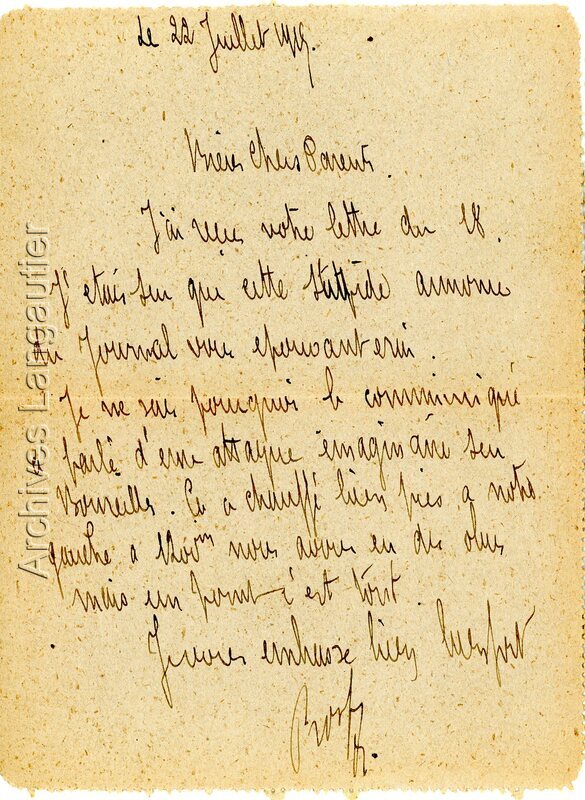 Le 22 Juillet 1915.
Bien Chers Parents.
J'ai reçu votre lettre du 18.
J'etais sur que cette stupide annonce
du Journal vous epouvanterai.
Je ne sais pourquoi le communiqué
parle d'une attaque imaginaire sur
Boureilles. Ca a chauffé bien près a notre
gauche a 1200m nous avons eu des obus
mais un point c'est tout
Je vous embrasse bien
Archives Langautier